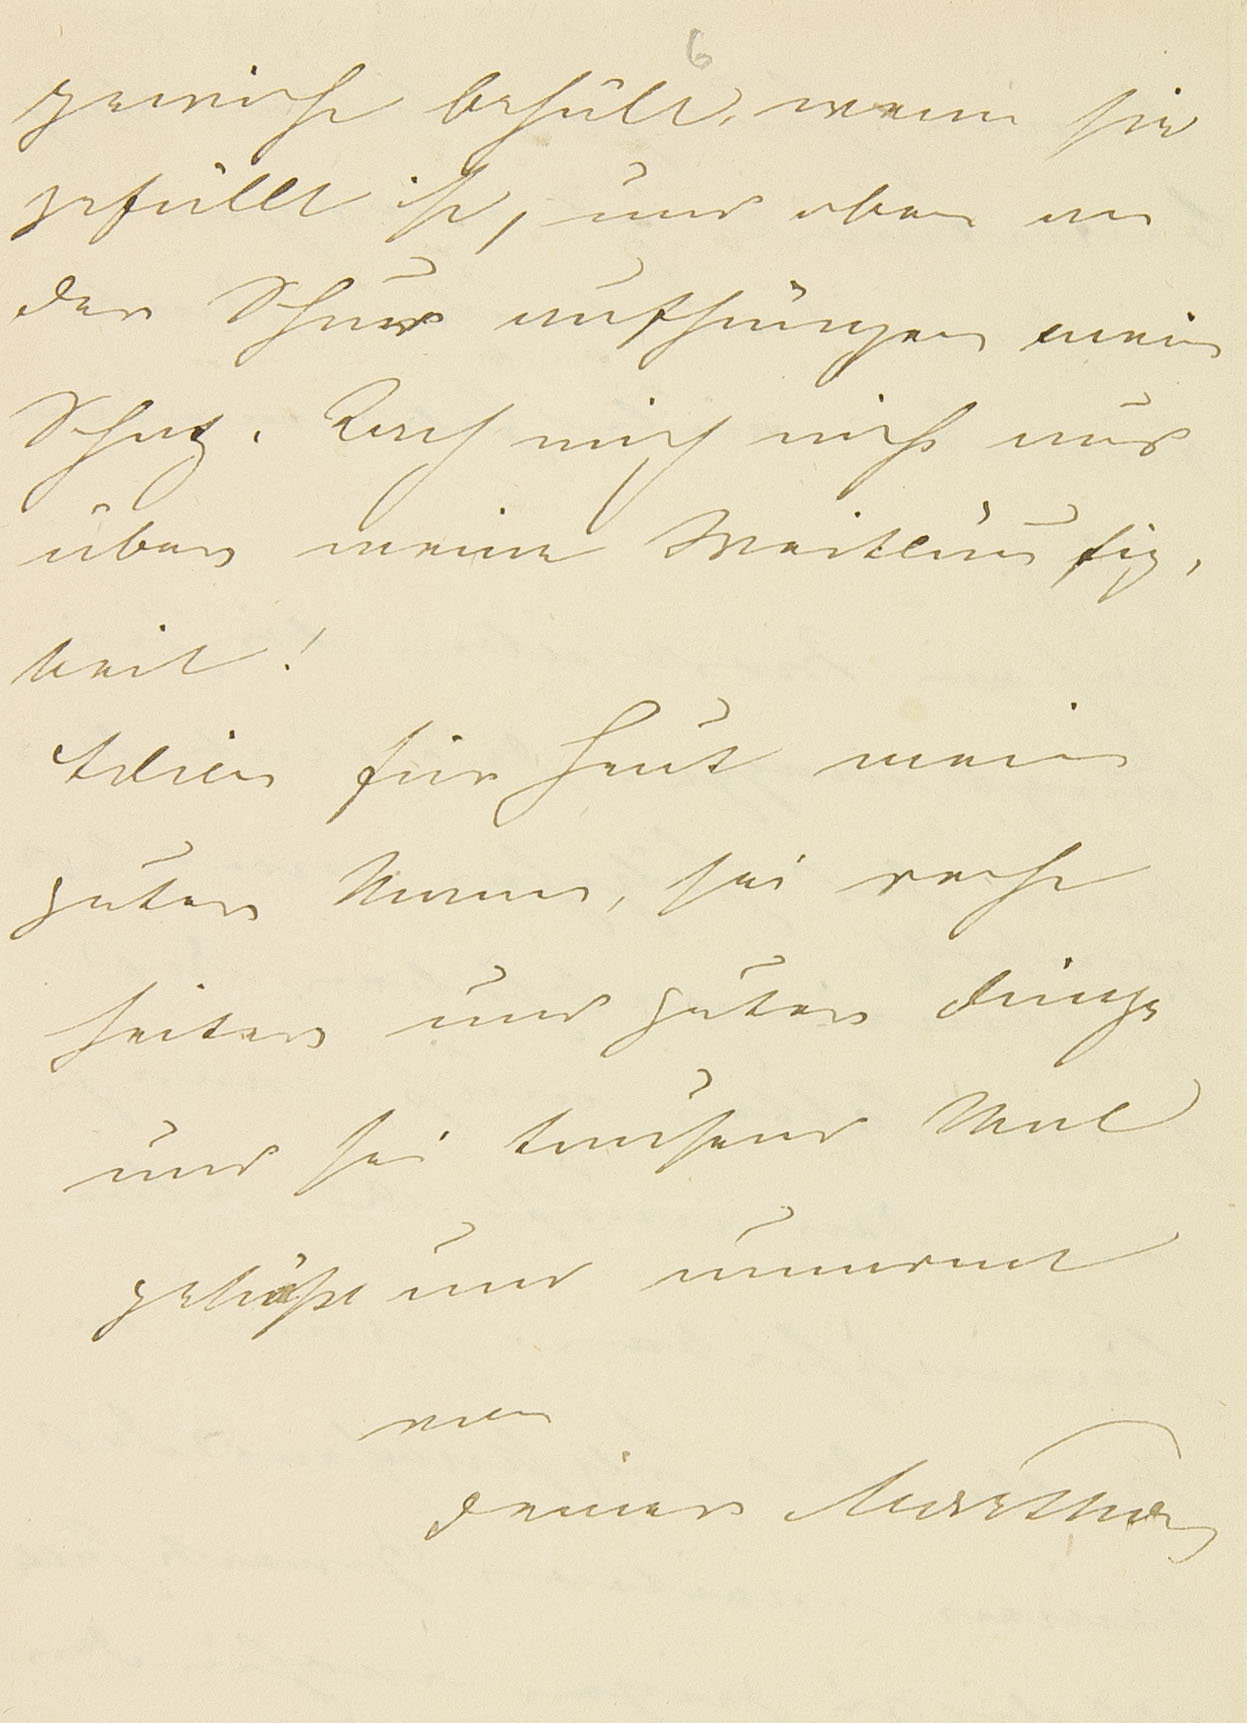 6
gewicht behält, wenn sie
gefüllt ist, und oben an
der Schnur aufhängen mein
Schatz. Lach mich nicht aus
über meine Weitläufig-
keit!
Adieu für heut mein
guter Mann, sei recht
heiter und guter Dinge
und sei tausend Mal
geküßt und umarmt
von
deiner Martha